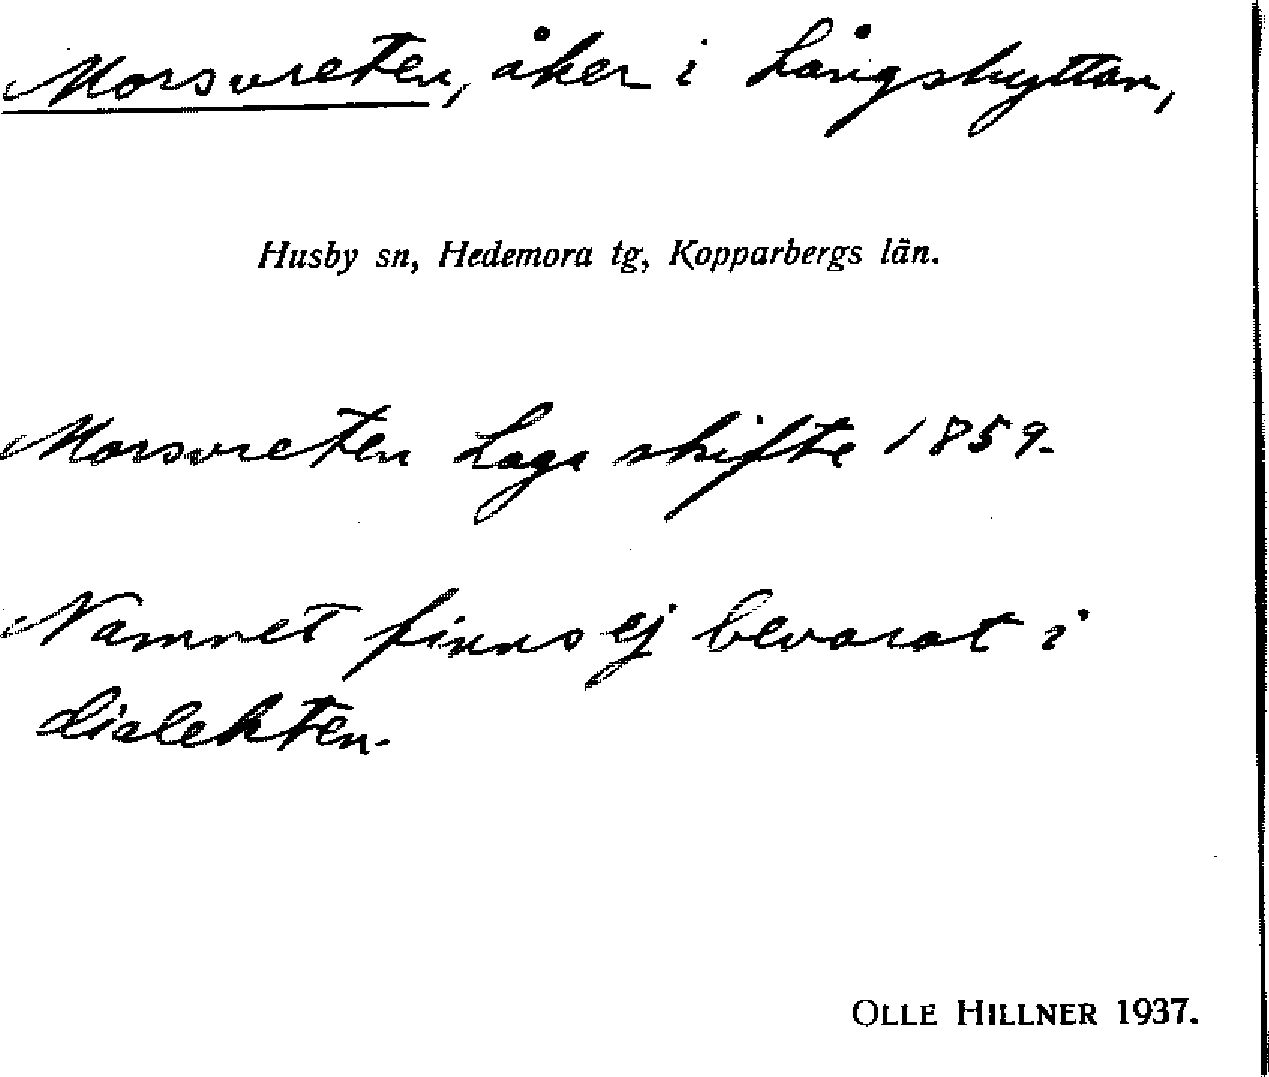 Morsvreten, åker i Långshyttan,
Husby sn, Hedemora tg, Kopparbergs län.
Morsvreten Laga skifte 1859.
Namnet finns ej bevarat i
dialekten.
OLLE HILLNER 1937.